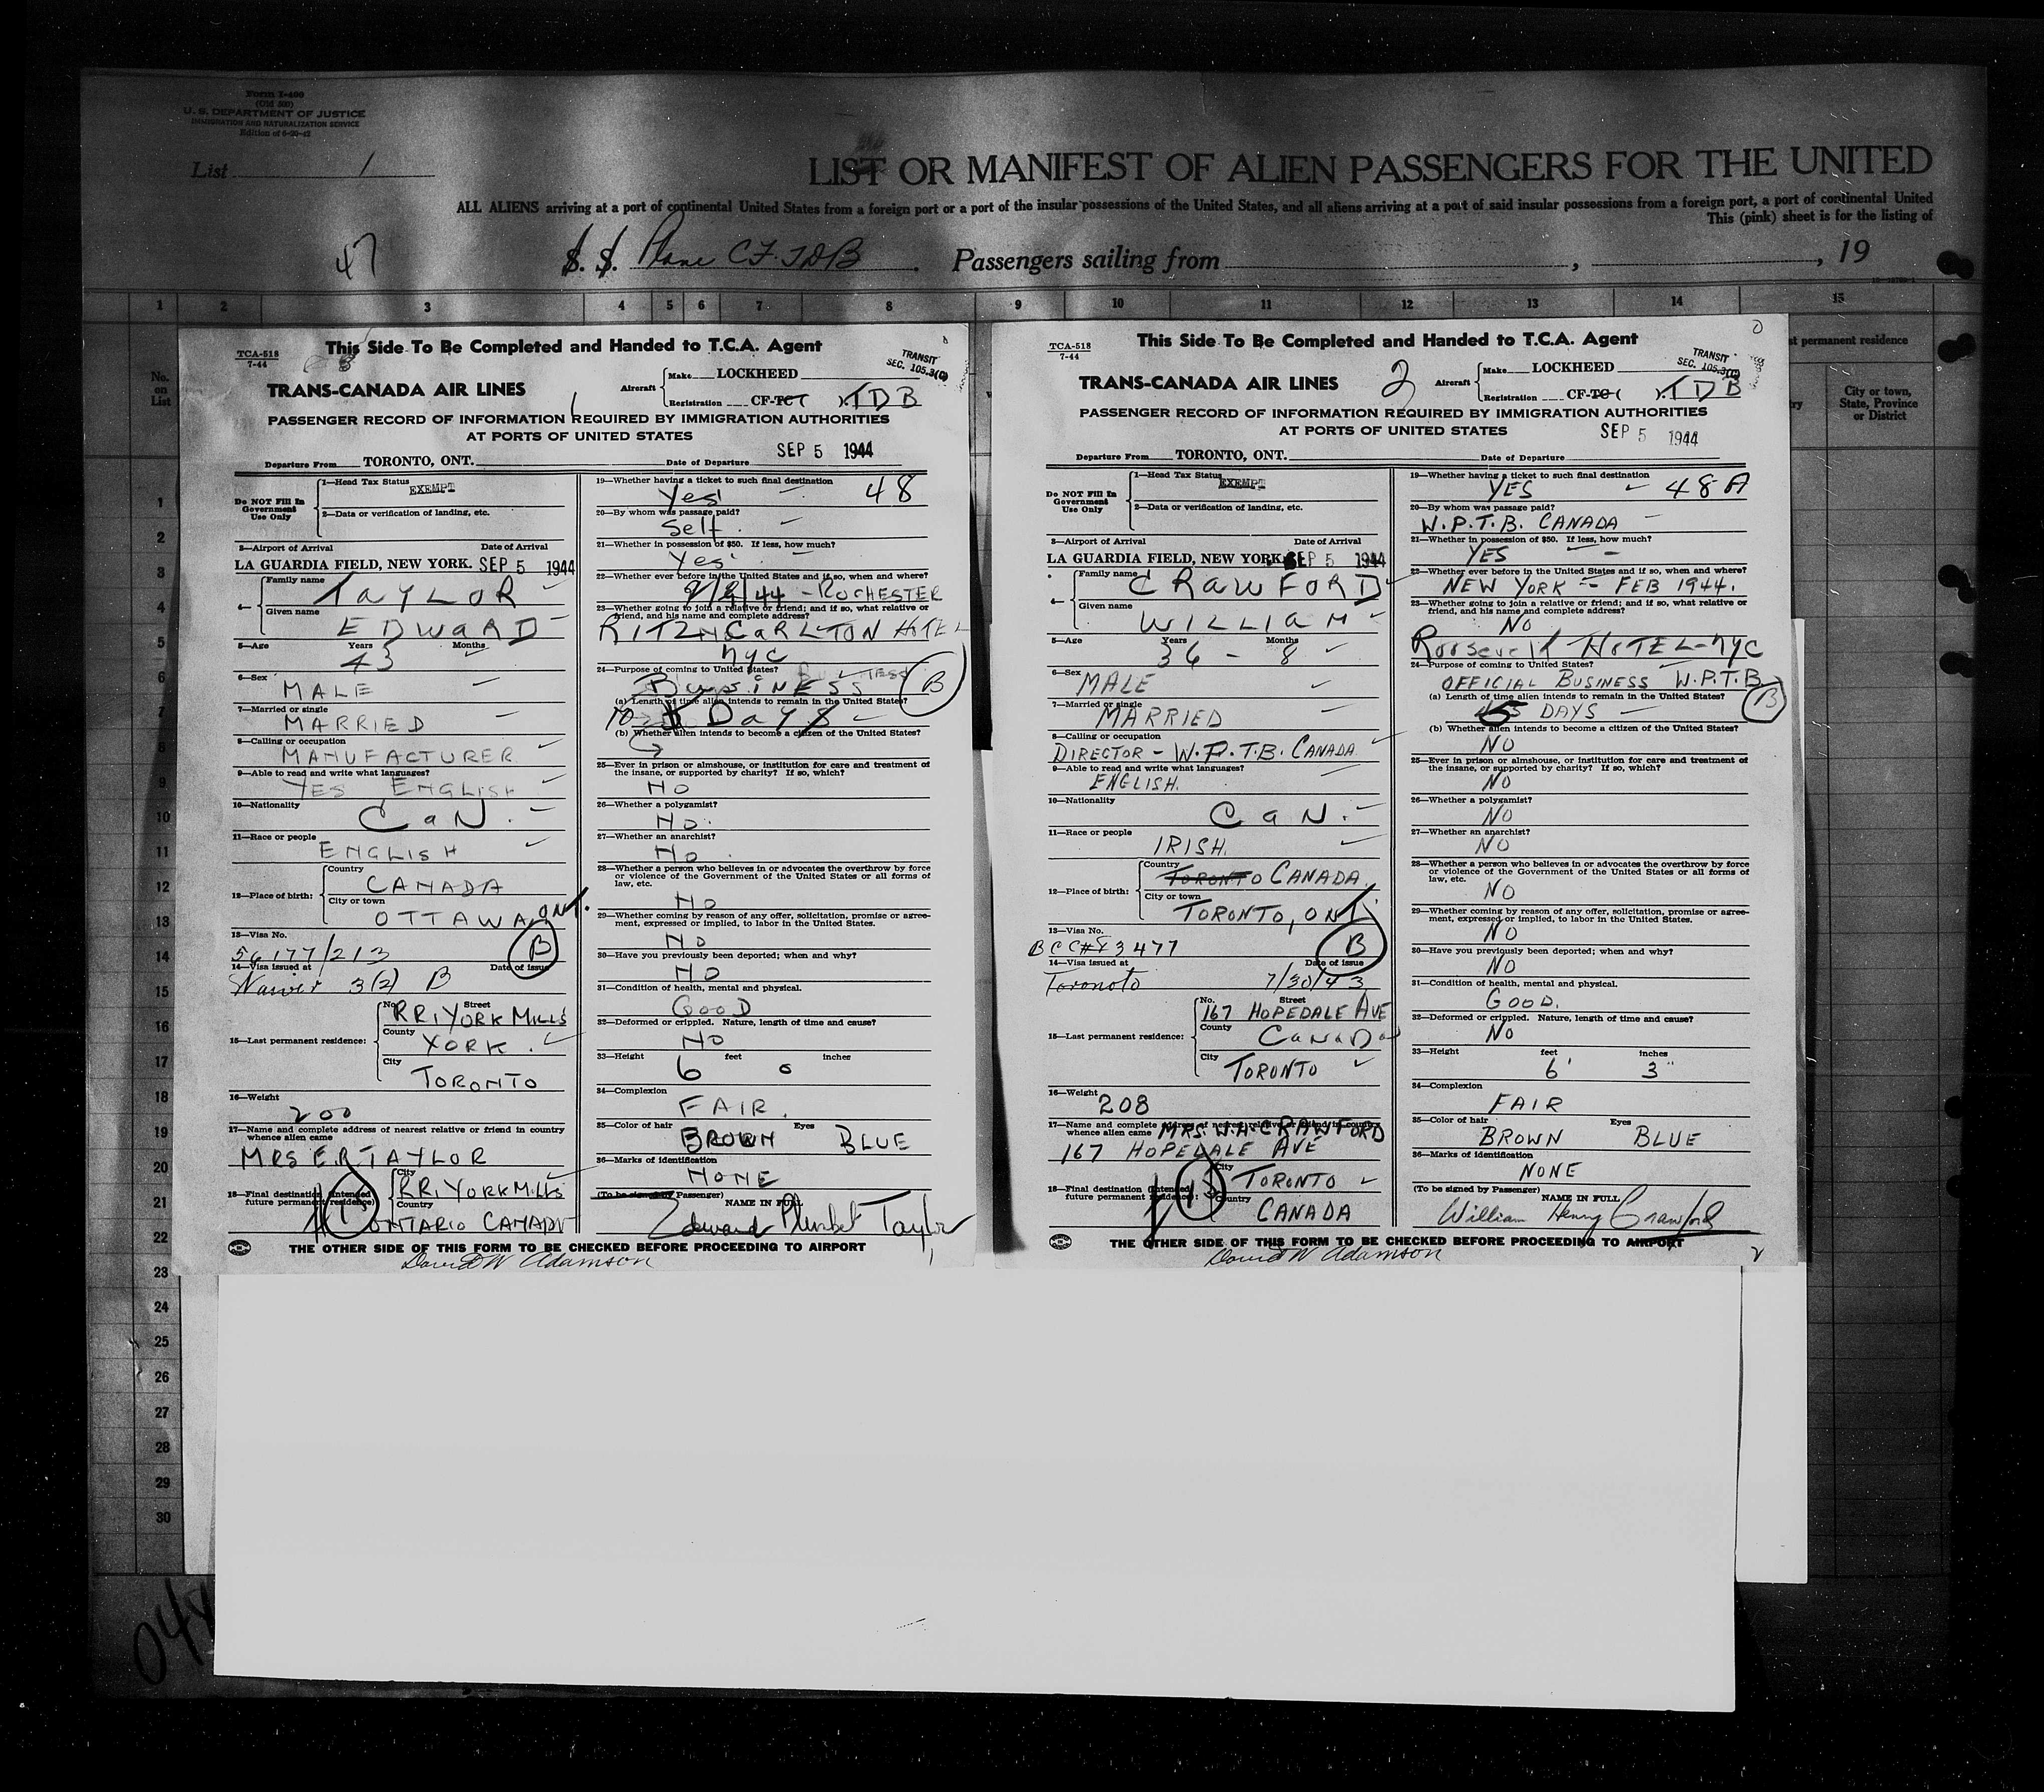 Form I-400
(Old 500)
U. S. DEPARTMENT OF JUSTICE
IMMIGRATION AND NATURALIZATION SERVICE
Edition of 6-20-42
List 1
LIST OR MANIFEST OF ALIEN PASSENGERS FOR THE UNITED
ALL ALIENS arriving at a port of continental United States from a foreign port or a port of the insular possessions of the United States, and all aliens arriving at a port of said insular possessions from a foreign port, a port of continental United
This (pink) sheet is for the listing of
47 S. S. Plane CF. TDB. Passengers sailing from , , 19
1 2 3 4 5 6 7 8 9 10 11 12 13 14 15
No. on List
st permanent residence
City or town, State, Province or District
1
2
3
4
5
6
7
8
9
10
11
12
13
14
15
16
17
18
19
20
21
22
23
24
25
26
27
28
29
30
04
This Side To Be Completed and Handed to T.C.A. Agent
TCA-518
7-44
TRANSIT
SEC. 105.3(C)
TRANS-CANADA AIR LINES
Aircraft Make LOCKHEED
Registration CF-TC( ). TDB
1
PASSENGER RECORD OF INFORMATION REQUIRED BY IMMIGRATION AUTHORITIES
AT PORTS OF UNITED STATES
SEP 5 1944
Departure From TORONTO, ONT. Date of Departure
Do NOT Fill In Government Use Only
1—Head Tax Status
EXEMPT
2—Data or verification of landing, etc.
3—Airport of Arrival Date of Arrival
LA GUARDIA FIELD, NEW YORK. SEP 5 1944
4— Family name
TAYLOR
Given name
EDWARD
5—Age Years Months
43
6—Sex
MALE
7—Married or single
MARRIED
8—Calling or occupation
MANUFACTURER
9—Able to read and write what languages?
YES ENGLISH
10—Nationality
CAN.
11—Race or people
ENGLISH
12—Place of birth: Country
CANADA
City or town
OTTAWA, ONT.
13—Visa No.
56177/213 B
14—Visa issued at Date of issue
Waiver 3(2) B
15—Last permanent residence: No. Street
RR1 YORK MILLS
County
YORK.
City
TORONTO
16—Weight
200
17—Name and complete address of nearest relative or friend in country
whence alien came
MRS E R TAYLOR
18—Final destination (intended future permanent residence) City
RR1 YORK MILLS
Country
ONTARIO CANADA
19—Whether having a ticket to such final destination
Yes 48
20—By whom was passage paid?
Self.
21—Whether in possession of $50. If less, how much?
Yes
22—Whether ever before in the United States and if so, when and where?
44 - ROCHESTER
23—Whether going to join a relative or friend; and if so, what relative or
friend, and his name and complete address?
RITZ CARLTON HOTEL
NYC
24—Purpose of coming to United States?
BUSINESS B
(a) Length of time alien intends to remain in the United States?
10 DAYS
(b) Whether alien intends to become a citizen of the United States?
25—Ever in prison or almshouse, or institution for care and treatment of
the insane, or supported by charity? If so, which?
NO
26—Whether a polygamist?
NO.
27—Whether an anarchist?
NO.
28—Whether a person who believes in or advocates the overthrow by force
or violence of the Government of the United States or all forms of
law, etc.
NO
29—Whether coming by reason of any offer, solicitation, promise or agree-
ment, expressed or implied, to labor in the United States.
NO
30—Have you previously been deported; when and why?
NO
31—Condition of health, mental and physical.
GOOD
32—Deformed or crippled. Nature, length of time and cause?
NO
33—Height feet inches
6 0
34—Complexion
FAIR.
35—Color of hair Eyes
BROWN BLUE
36—Marks of identification
NONE
(To be signed by Passenger) NAME IN FULL
Edward Plunket Taylor
THE OTHER SIDE OF THIS FORM TO BE CHECKED BEFORE PROCEEDING TO AIRPORT
David W Adamson
This Side To Be Completed and Handed to T.C.A. Agent
TCA-518
7-44
TRANSIT
SEC. 105.3(C)
TRANS-CANADA AIR LINES
2
Aircraft Make LOCKHEED
Registration CF-TC( ). TDB
PASSENGER RECORD OF INFORMATION REQUIRED BY IMMIGRATION AUTHORITIES
AT PORTS OF UNITED STATES
SEP 5 1944
Departure From TORONTO, ONT. Date of Departure
Do NOT Fill In Government Use Only
1—Head Tax Status
EXEMPT
2—Data or verification of landing, etc.
3—Airport of Arrival Date of Arrival
LA GUARDIA FIELD, NEW YORK. SEP 5 1944
4— Family name
CRAWFORD
Given name
WILLIAM
5—Age Years Months
36 - 8
6—Sex
MALE
7—Married or single
MARRIED
8—Calling or occupation
DIRECTOR - W.P.T.B. CANADA
9—Able to read and write what languages?
ENGLISH.
10—Nationality
CAN.
11—Race or people
IRISH.
12—Place of birth: Country
TORONTO CANADA
City or town
TORONTO, ONT.
13—Visa No.
BCC#83477 B
14—Visa issued at Date of issue
Toronoto 7/30/43
15—Last permanent residence: No. Street
167 HOPEDALE AVE
County
CANADA
City
TORONTO
16—Weight
208
17—Name and complete address of nearest relative or friend in country
whence alien came MRS. W.H. CRAWFORD
167 HOPEDALE AVE
18—Final destination (intended future permanent residence): City
TORONTO
Country
CANADA
19—Whether having a ticket to such final destination
YES 48A
20—By whom was passage paid?
W.P.T.B. CANADA
21—Whether in possession of $50. If less, how much?
YES
22—Whether ever before in the United States and if so, when and where?
NEW YORK - FEB 1944.
23—Whether going to join a relative or friend; and if so, what relative or
friend, and his name and complete address?
NO
Roosevelt HOTEL-NYC
24—Purpose of coming to United States?
OFFICIAL BUSINESS W.P.T.B.
(a) Length of time alien intends to remain in the United States?
DAYS B
(b) Whether alien intends to become a citizen of the United States?
NO
25—Ever in prison or almshouse, or institution for care and treatment of
the insane, or supported by charity? If so, which?
NO
26—Whether a polygamist?
NO
27—Whether an anarchist?
NO
28—Whether a person who believes in or advocates the overthrow by force
or violence of the Government of the United States or all forms of
law, etc.
NO
29—Whether coming by reason of any offer, solicitation, promise or agree-
ment, expressed or implied, to labor in the United States.
NO
30—Have you previously been deported; when and why?
NO
31—Condition of health, mental and physical.
GOOD.
32—Deformed or crippled. Nature, length of time and cause?
NO
33—Height feet inches
6' 3"
34—Complexion
FAIR
35—Color of hair Eyes
BROWN BLUE
36—Marks of identification
NONE
(To be signed by Passenger) NAME IN FULL
William Henry Crawford
THE OTHER SIDE OF THIS FORM TO BE CHECKED BEFORE PROCEEDING TO AIRPORT
David W Adamson